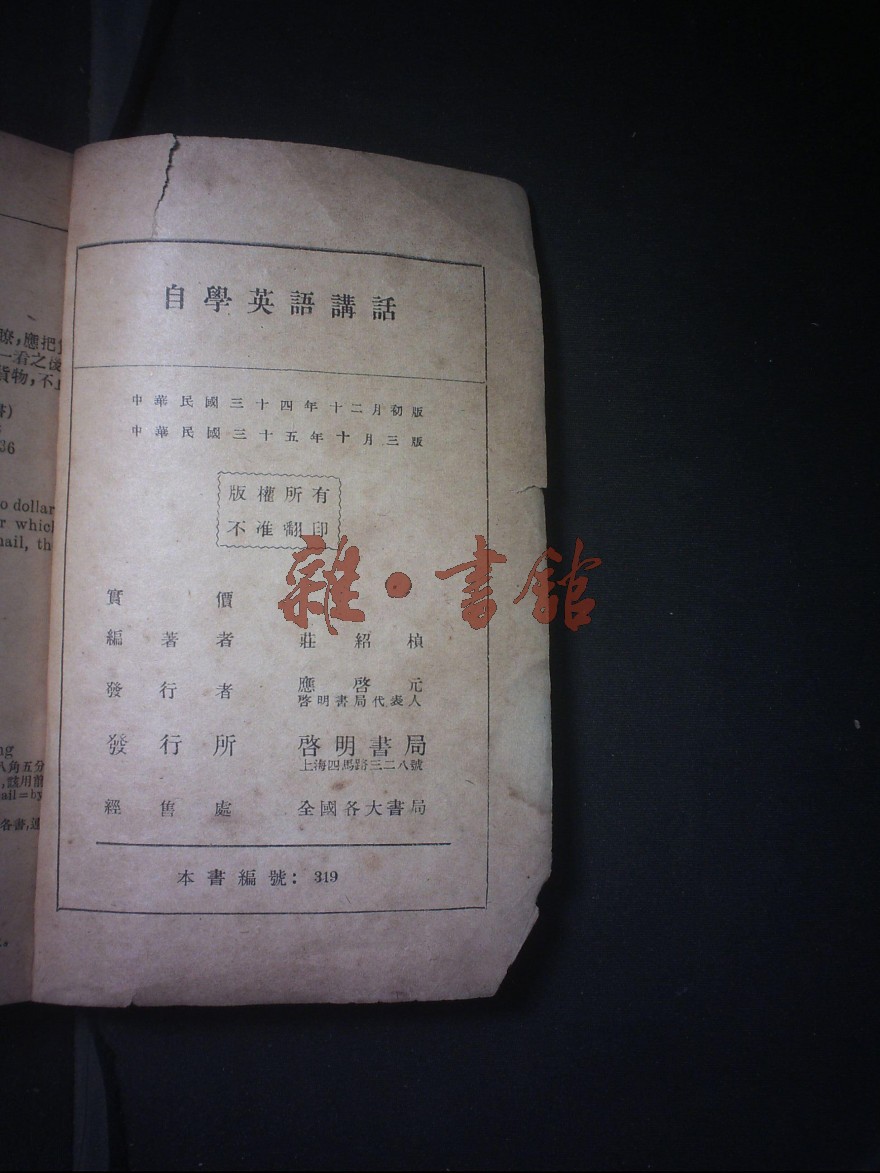 瞭,應把
一看之後
貨物,不
36
o dollar
r which
mail, th
ng
八角五分
ail=by
各書,
自學英語講話
中華民國三十四年十二月初版
中華民國三十五年十月三版
版權所有
不准翻印
雜·書館
實價
編著者 莊紹楨
發行者 應啓元
啓明書局代表人
發行所 啓明書局
上海四馬路三二八號
經售處 全國各大書局
本書編號:319